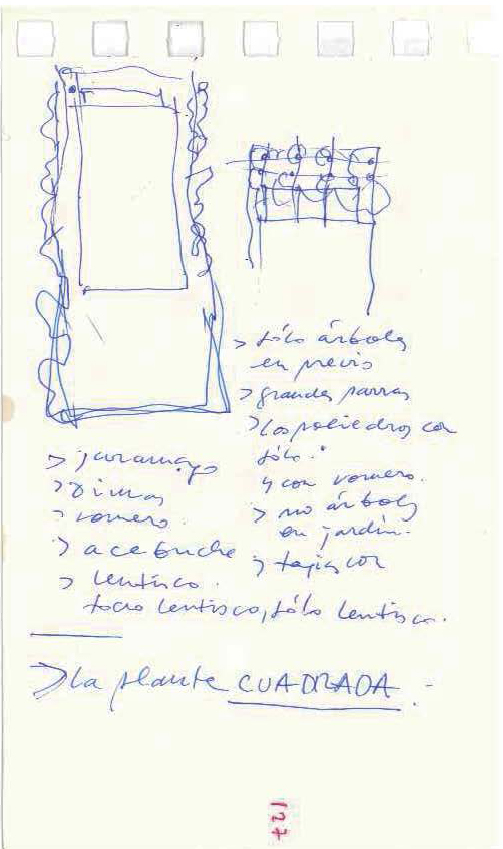 > sólo árboles
en previo
> grandes parras
> los poliedros con
sólo.
y con romero.
> no árboles
en jardín.
> tapias con
> jaramago
>
> romero.
> acebuche
> lentisco.
todo lentisco, sólo lentisco.
> La planta CUADRADA.-
127